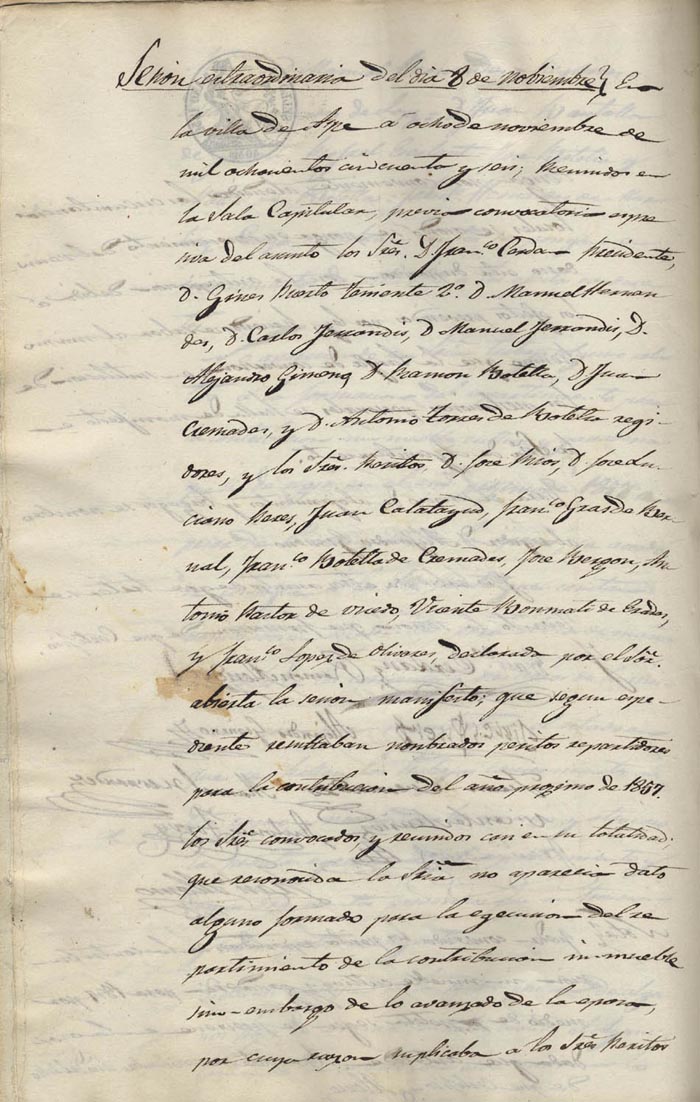 Sesion extraordinaria del dia 8 de noviembre} En
la villa de Aspe á ocho de noviembre de
mil ochocientos cincuenta y seis; Reunidos en
la Sala Capitular, previa convocatoria espre
siva del asunto los Sres. D. Franco. Cerdan Presidente,
D. Gines Puerto teniente 2º. D. Manuel Hernan
des, D. Carlos Ferrandis, D. Manuel Ferrandis, D.
Alejandro Gimenez D. Ramon Botella, D. Juan
Cremades, y D. Antonio Torres de Botella regi-
dores, y los Sres. Peritos, D. Jose Rios, D. Jose Lu-
ciano Peres, Juan Calatayud, Franco. Gras de Ber-
nal, Franco. Botella de Cremades, Jose Bergon, An-
tonio Pastor de Oviedo, Vicente Bonmati de
y Franco. Lopez de Olivares, declarada por el Sor.
abierta la sesion manifesto; que segun espe-
diente resultaban nombrados peritos repartidores
para la contribucion del año proximo de 1857.
los Sres. convocados, y reunidos casi en su totalidad;
que reconocida la Sria. no aparecia dato
alguno formado para la egecucion del re
partimiento de la contribucion inmueble
sin-embargo de lo avanzado de la epoca,
por cuya razon suplicaba a los Sres. Peritos